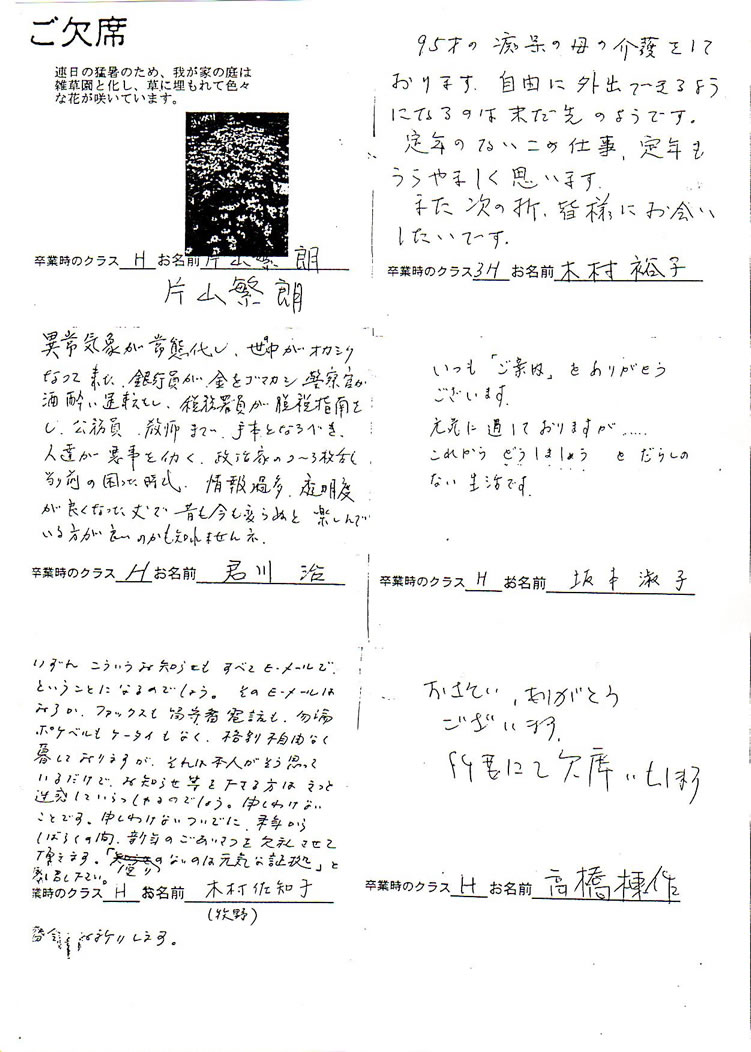 ご欠席
連日の猛暑のため、我が家の庭は
雑草園と化し、草に埋もれて色々
な花が咲いています。
卒業時のクラス H お名前 片山繁朗
片山繁朗
95才の痴呆の母の介護をして
おります。自由に外出できるよう
になるのは未だ先のようです。
定年のないこの仕事、定年も
うらやましく思います。
また次の折、皆様にお会い
したいです。
卒業時のクラス 3H お名前 木村裕子
異常気象が常態化し、世の中がオカシク
なって来た。銀行員が金をゴマカシ、警察官が
酒酔い運転をし、税務署員が脱税指南を
し、公務員、教師まで、手本となるべき
人達が悪事を働く、政治家の2〜3枚舌も
当り前の困った時代。情報過多、透明度
が良くなった丈で昔も今も変らぬと楽しんで
いる方が良いのかも知れませんネ。
卒業時のクラス H お名前 君川 治
いつも「ご案内」をありがとう
ございます。
元気に過しておりますが……
これから どうしましょう と だらしの
ない生活です。
卒業時のクラス H お名前 坂本 淑子
いずれ こういうお知らせも すべて E・メールで、
ということになるのでしょう。そのE・メールは
おろか、ファックスも留守番電話も、勿論
ポケベルもケータイもなく、格別不自由なく
暮しておりますが、それは本人がそう思って
いるだけで、お知らせ等を下さる方は きっと
迷惑していらっしゃるのでしょう。申しわけない
ことです。申しわけないついでに、来年から
しばらくの間、新年のごあいさつを欠礼させて
頂きます。「便りのないのは元気な証拠」と
業時のクラス H お名前 木村佐知子
(牧野)
します。
お世話、ありがとう
ございます。
所用にて欠席いたします
卒業時のクラス H お名前 高橋棟作